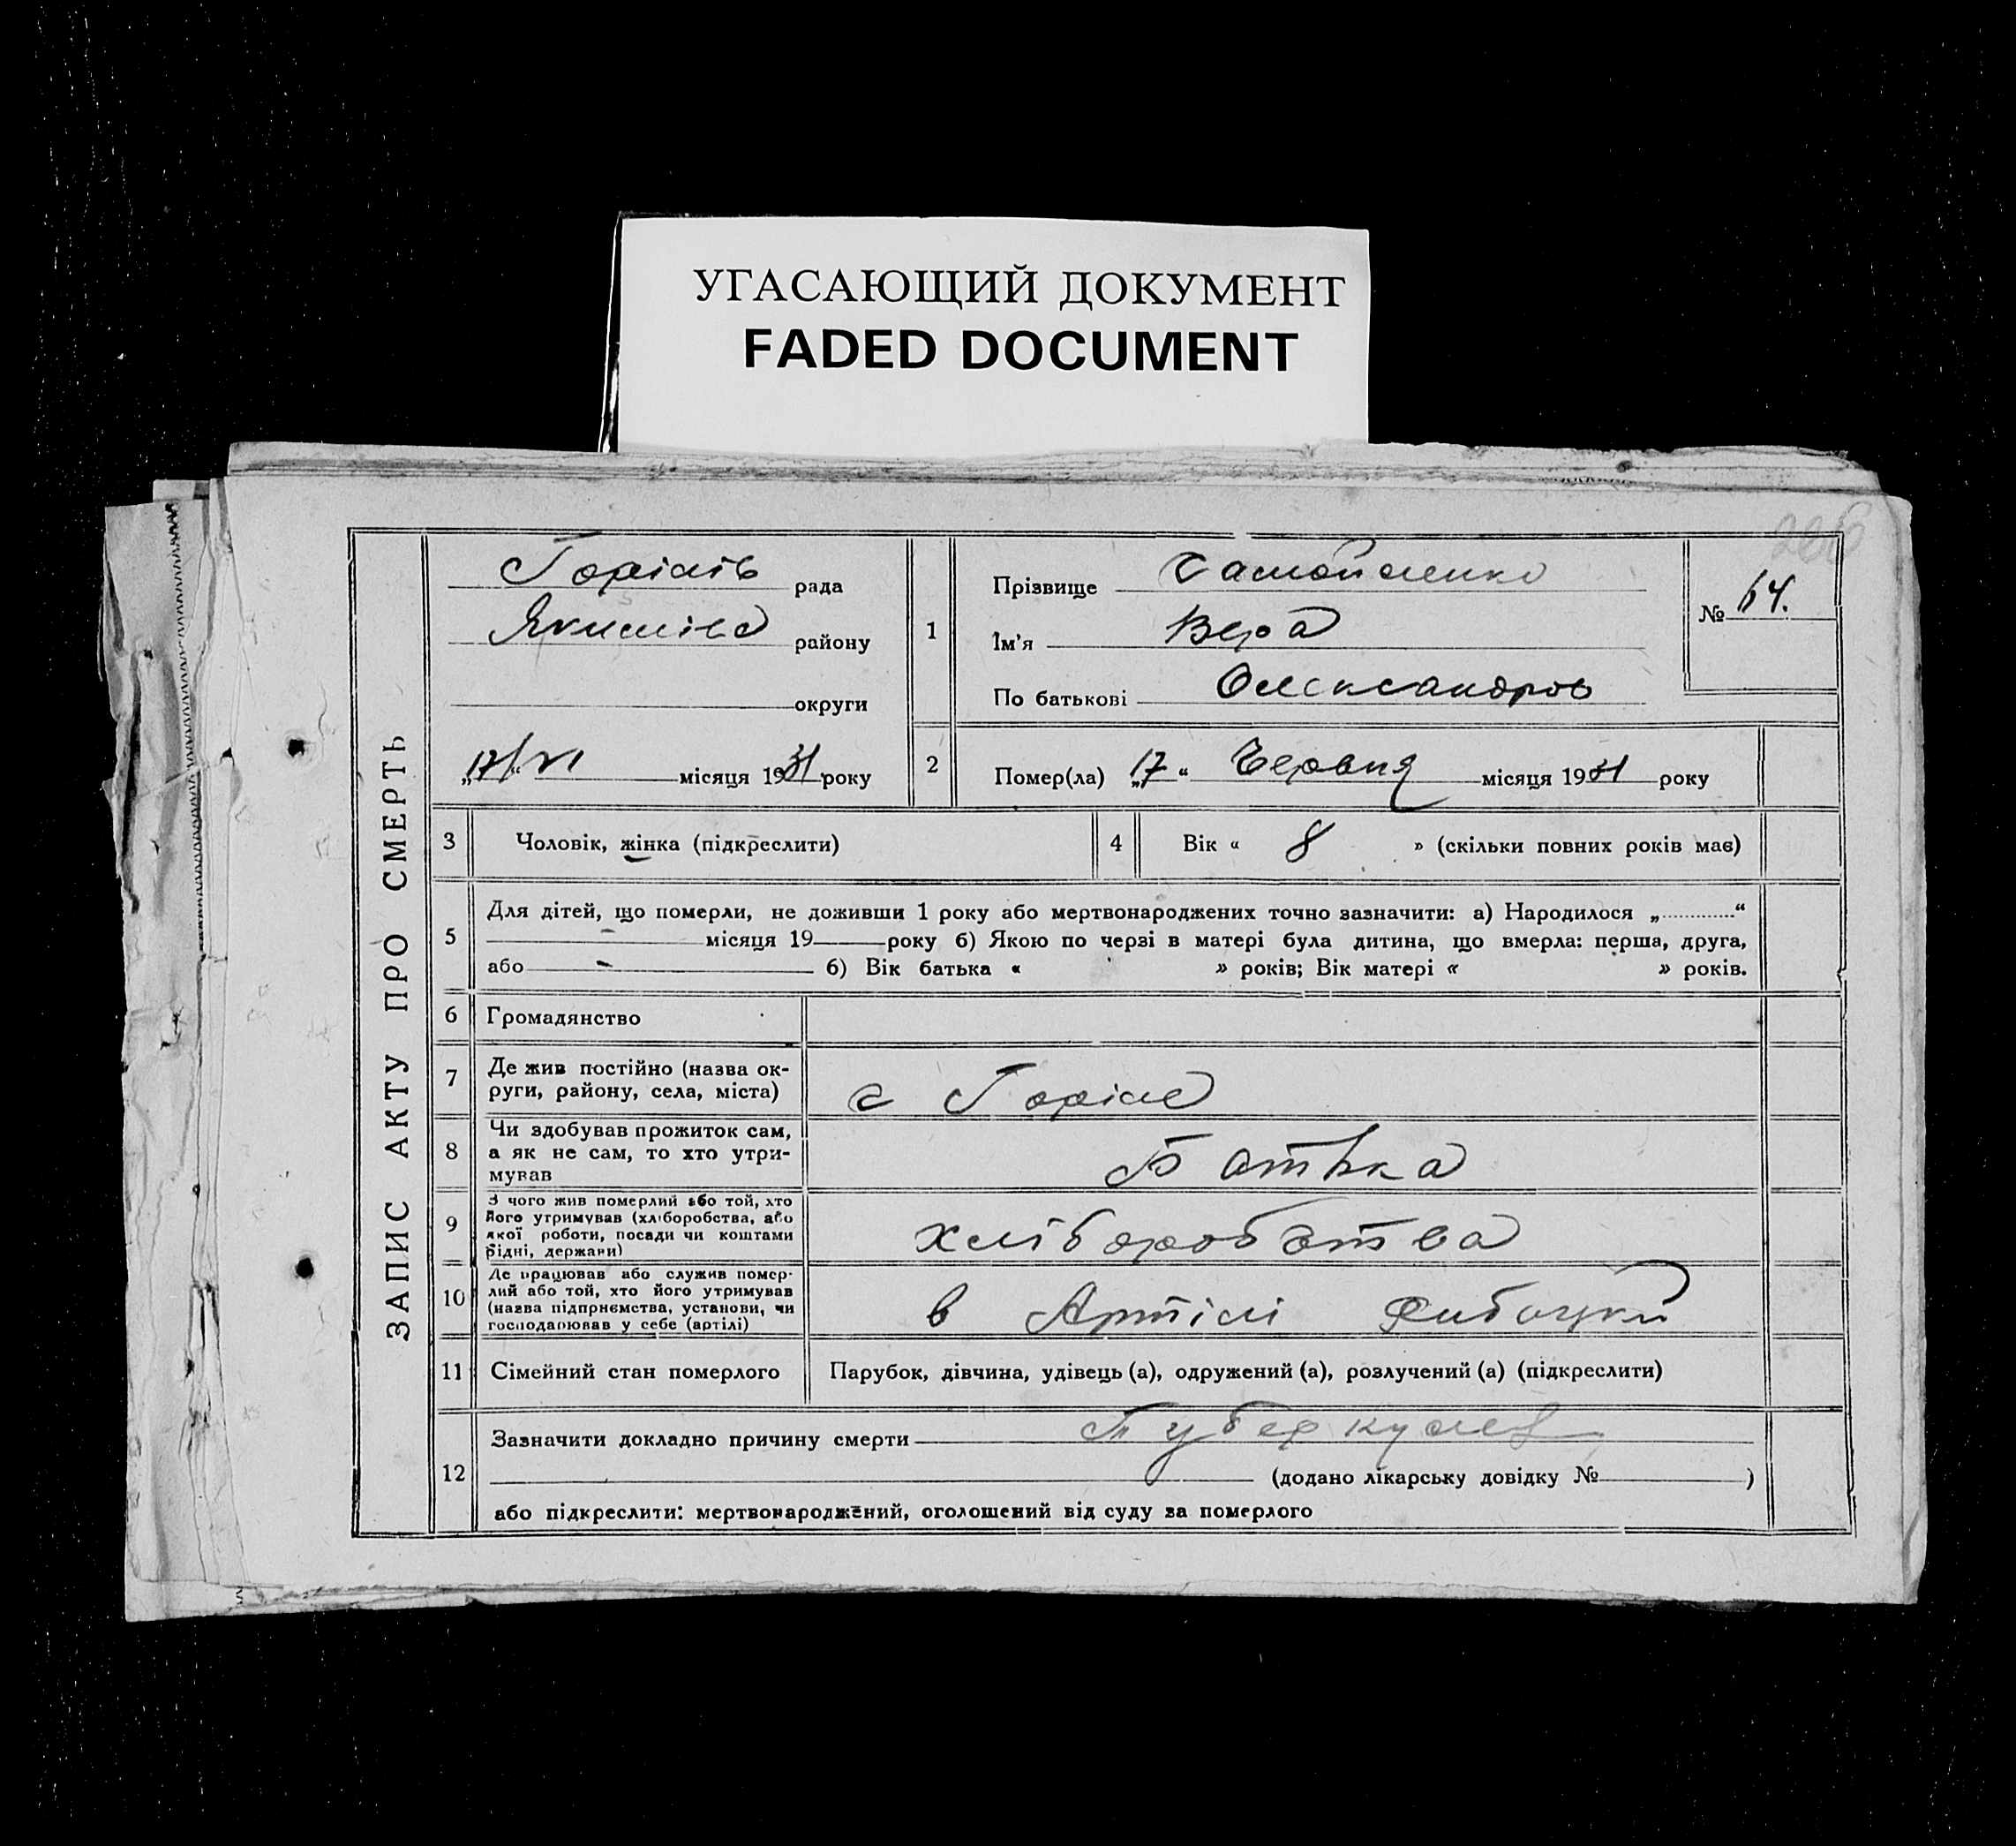 УГАСАЮЩИЙ ДОКУМЕНТ
FADED DOCUMENT
ЗАПИС АКТУ ПРО СМЕРТЬ
Горілів рада
району
округи
„17/“ VI місяця 1931 року
1
Прізвище Самойленко
Ім'я Вера
По батькові Олександров
№ 64.
2
Помер(ла) „17“ Червня місяця 1931 року
3 Чоловік, жінка (підкреслити)
4 Вік « 8 » (скільки повних років має)
5
Для дітей, що померли, не доживши 1 року або мертвонароджених точно зазначити: а) Народилося „ “
- місяця 19 року б) Якою по черзі в матері була дитина, що вмерла: перша, друга,
або - б) Вік батька « » років; Вік матері « » років.
6 Громадянство
7 Де жив постійно (назва ок-
руги, району, села, міста)
с Горіле
8 Чи здобував прожиток сам,
а як не сам, то хто утри-
мував
Батька
9 З чого жив померлий або той, хто
його утримував (хліборобства, або
якої роботи, посади чи коштами
рідні, держави)
хліборобства
10 Де працював або служив помер-
лий або той, хто його утримував
(назва підпрнємства, установи, чи
господарював у себе (артілі)
в Артілі
11 Сімейний стан померлого
Парубок, дівчина, удівець (а), одружений (а), розлучений (а) (підкреслити)
12
Зазначити докладно причину смерти Туберкулез
(додано лікарську довідку № )
або підкреслити: мертвонароджений, оголошений від суду за померлого